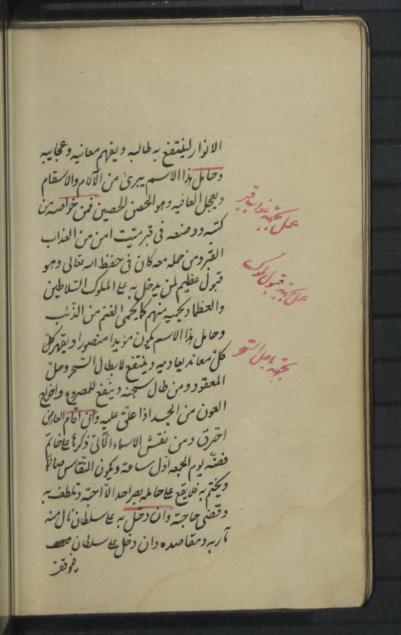 الانوار لينتفع به طالبه ويفهم معانيه وعجايبه
وحامل هذا الاسم يبرئ من الآلام والاسقام
ويعجل العافيه وهو الحصن الحصين فمن خواصه من
كتبه ووضعه في قبر ميّت امن من العذاب
القبر ومن حمله معه كان في حفظ الله تعالى وهو
قبول عظيم لمن يدخل به على الملوك السلاطين
والعظماء يحميه منهم كما يحمى الغنم من الذئب
وحامل هذا الاسم يكون مؤيدا منصورا ويقهر كل
كل معاند يعاديه وينتفع لابطال السحر وحل
المعقود ومن طال سجنه وينفع للمصروع واخراج
العون من الجسد اذا علق عليه وان اقام العارض
احترق ومن نقش الاسماء الآتي ذكرها على خاتم
فضّه يوم الجمعه اوّل ساعة ويكون النقاش صائما
ويختم به فلا يقع على حامله بصر احد الا احبّه وتلطف به
وقضى حاجته وان دخل به على سلطان نال منه
مآربه ومقاصده وان دخل على سلطان
عمل بجهة عذاب قبر
عمل بجهة قبول ملوك
بجهة باطل السحر